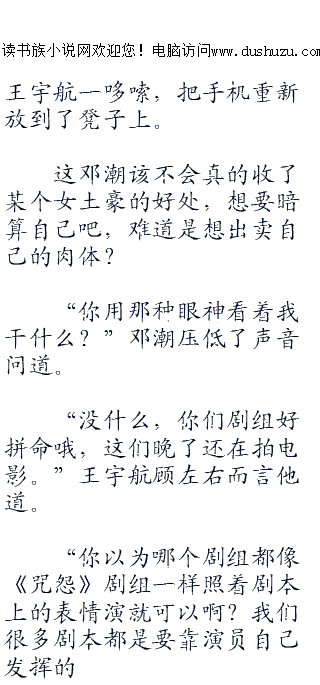 读书族小说网欢迎您！电脑访问www.dushuzu.com
王宇航一哆嗦，把手机重新
放到了凳子上。
这邓潮该不会真的收了
某个女土豪的好处，想要暗
算自己吧，难道是想出卖自
己的肉体？
“你用那种眼神看着我
干什么？”邓潮压低了声音
问道。
“没什么，你们剧组好
拼命哦，这们晚了还在拍电
影。”王宇航顾左右而言他
道。
“你以为哪个剧组都像
《咒怨》剧组一样照着剧本
上的表情演就可以啊？我们
很多剧本都是要靠演员自己
发挥的